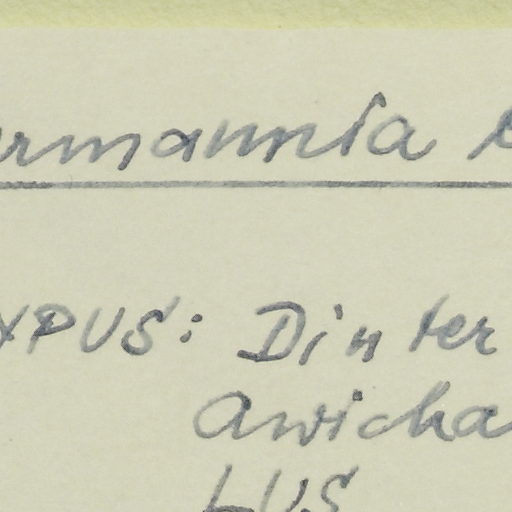 ermannia
YPUS: Dinter
Awicha
LUS